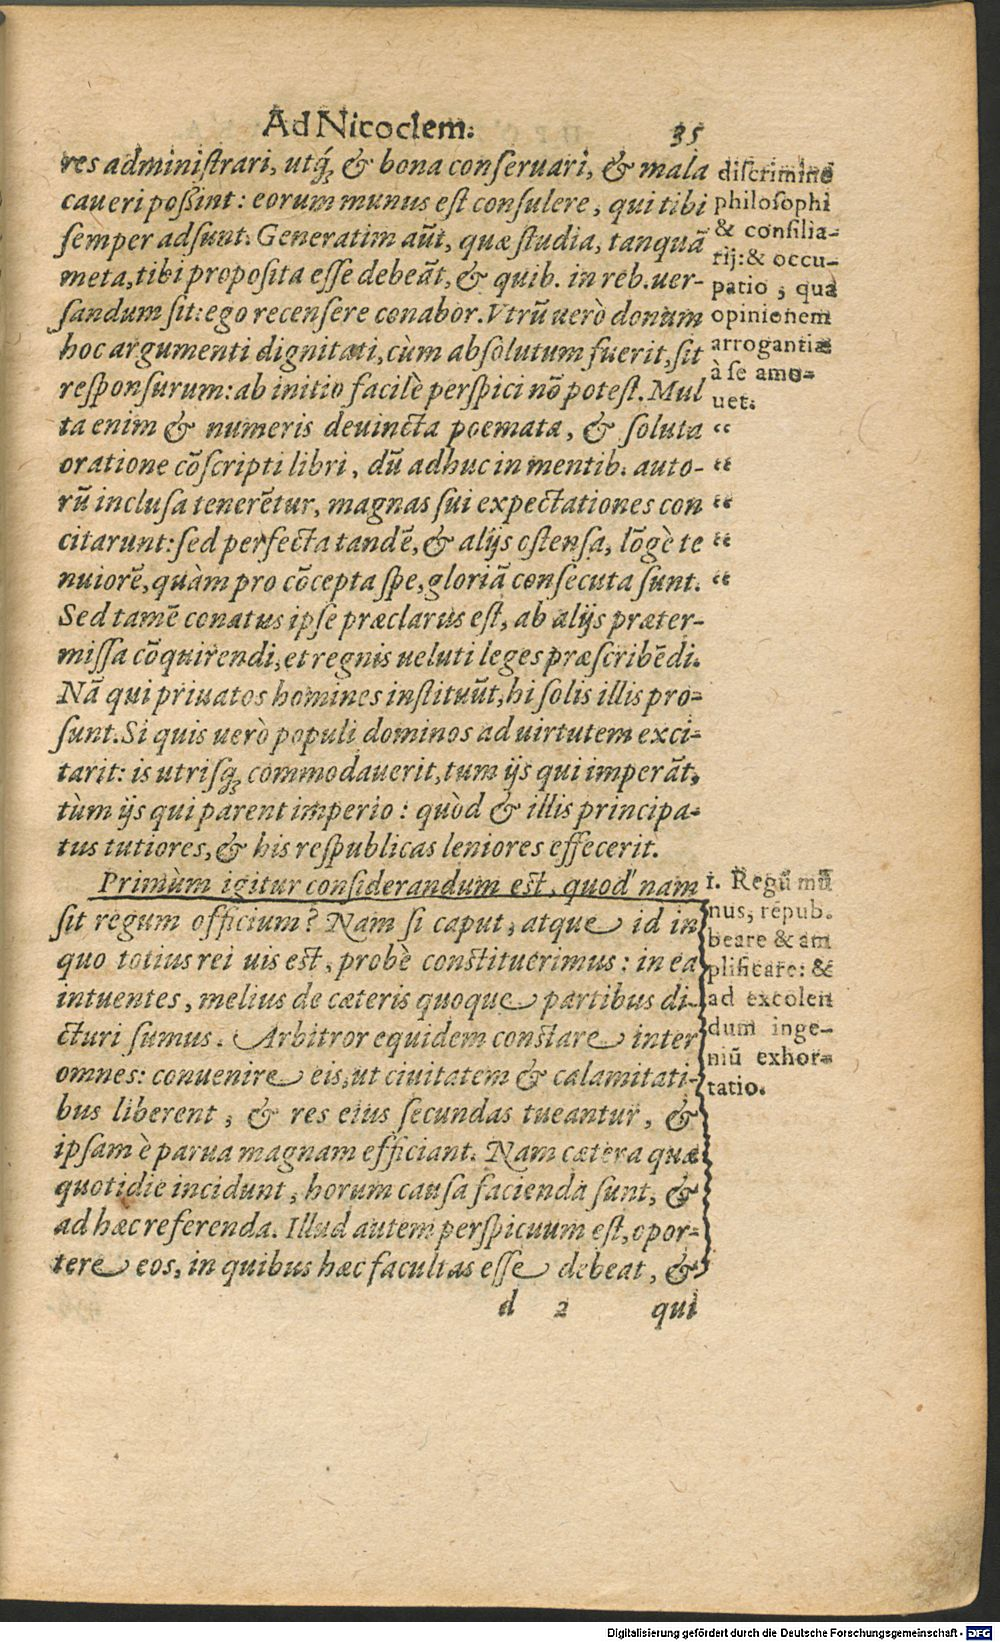 Ad Nicoclem. 35
res administrari, utq́ꝫ & bona conseruari, & mala
caueri poßint: eorum munus est consulere, qui tibi
semper adsunt. Generatim aūt, quæ studia, tanquā
meta, tibi proposita esse debeāt, & quib. in reb. uer-
sandum sit: ego recensere conabor. Vtrū uerò donum
hoc argumenti dignitati, cùm absolutum fuerit, sit
responsurum: ab initio facilè perspici nō potest. Mul
ta enim & numeris deuincta poemata, & soluta “
oratione cōscripti libri, dū adhuc in mentib. auto- “
rū inclusa tenerētur, magnas sui expectationes con “
citarunt: sed perfecta tandē, & alijs ostensa, lōgè te “
nuiorē, quàm pro cōcepta spe, gloriā consecuta sunt. “
Sed tamē conatus ipse præclarus est, ab alijs præter-
missa cōquirendi, et regnis ueluti leges præscribēdi.
Nā qui priuatos homines instituūt, hi solis illis pro-
sunt. Si quis uerò populi dominos ad uirtutem exci-
tarit: is utrisq́ꝫ commodauerit, tum ijs qui imperāt,
tùm ijs qui parent imperio: quòd & illis principa-
tus tutiores, & his respublicas leniores effecerit.
Primùm igitur considerandum est, quod nam
sit regum officium? Nam si caput, atque id in
quo totius rei uis est, probè constituerimus: in ea
intuentes, melius de cæteris quoque partibus di-
cturi sumus. Arbitror equidem constare inter
omnes: conuenire eis, ut ciuitatem & calamitati-
bus liberent, & res eius secundas tueantur, &
ipsam è parua magnam efficiant. Nam cætera quæ
quotidie incidunt, horum causa facienda sunt, &
ad hæc referenda. Illud autem perspicuum est, opor-
tere eos, in quibus hæc facultas esse debeat, &
d 2 qui
discrimine
philosophi
& consilia-
rij: & occu-
patio, qua
opinionem
arrogantiæ
à se amo-
uet.
1. Regū mu
nus, repub.
beare & am
plificare: &
ad excolen
dum inge-
niū exhor-
tatio.
Digitalisierung gefördert durch die Deutsche Forschungsgemeinschaft - DFG